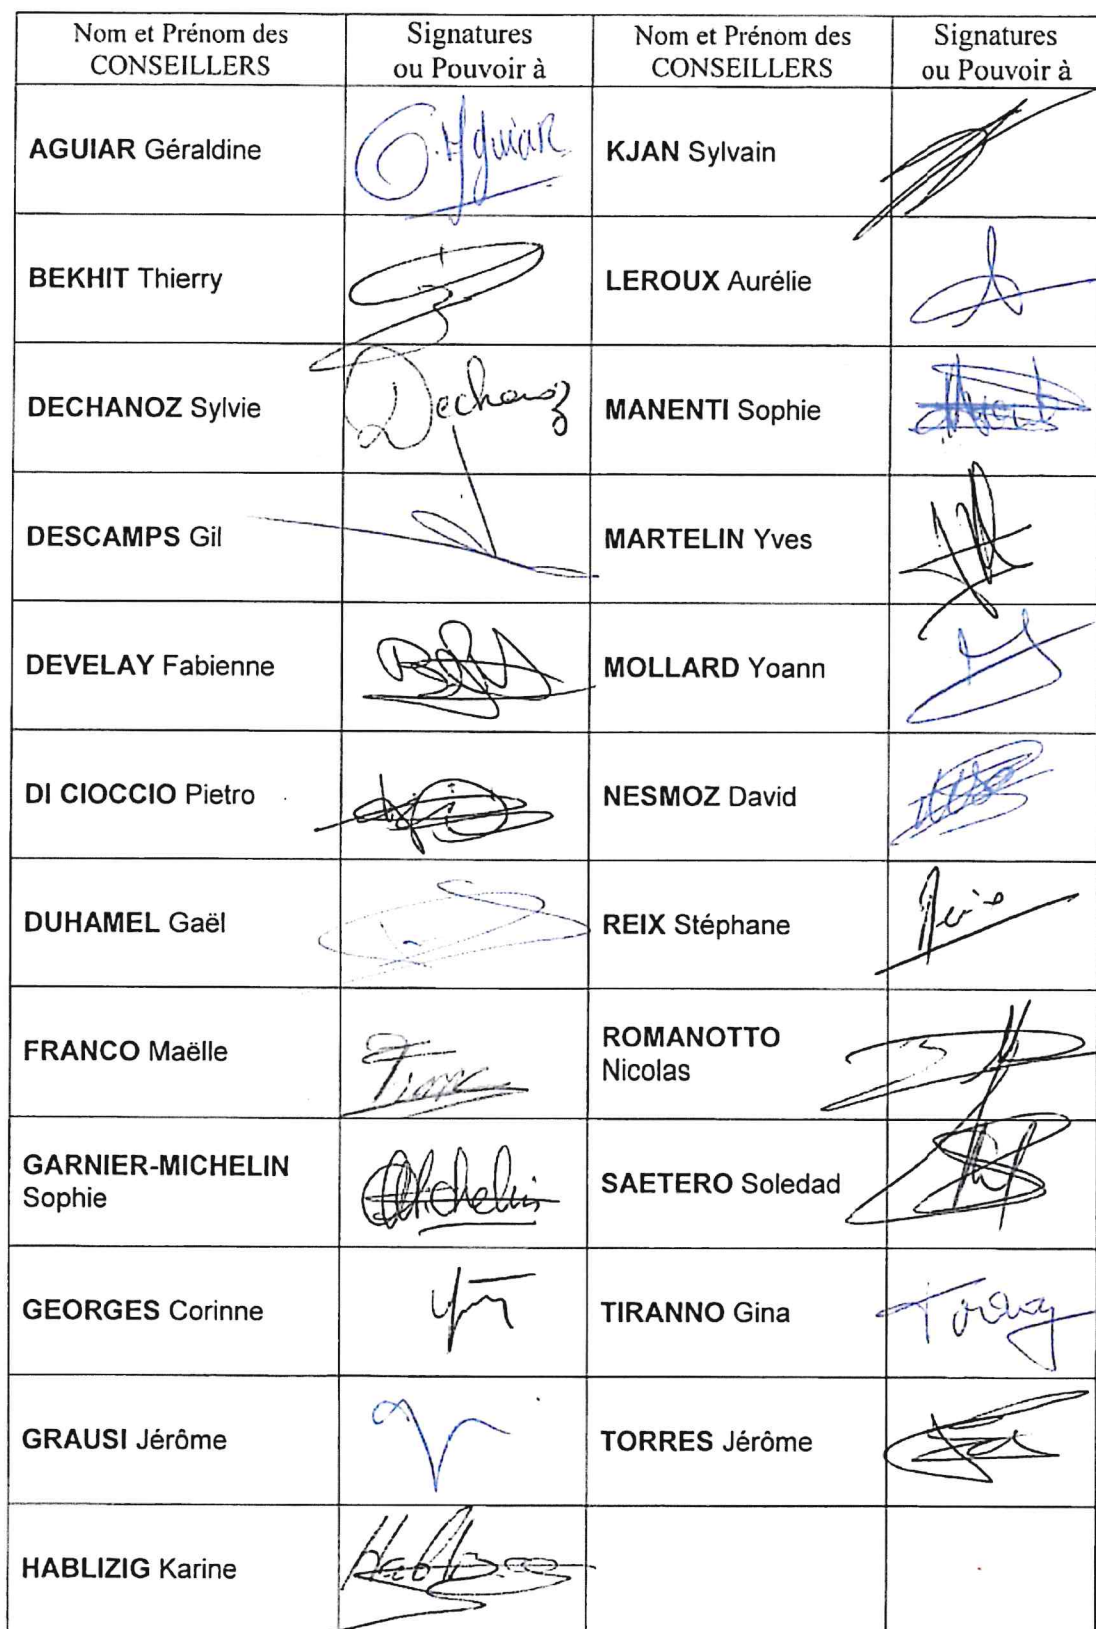 Nom et Prénom des
CONSEILLERS
Signatures
ou Pouvoir à
Nom et Prénom des
CONSEILLERS
Signatures
ou Pouvoir à
AGUIAR Géraldine
G. Aguiar
KJAN Sylvain
BEKHIT Thierry
LEROUX Aurélie
DECHANOZ Sylvie
Dechanoz
MANENTI Sophie
DESCAMPS Gil
MARTELIN Yves
DEVELAY Fabienne
MOLLARD Yoann
DI CIOCCIO Pietro
NESMOZ David
DUHAMEL Gaël
REIX Stéphane
FRANCO Maëlle
ROMANOTTO
Nicolas
GARNIER-MICHELIN
Sophie
Michelin
SAETERO Soledad
GEORGES Corinne
TIRANNO Gina
GRAUSI Jérôme
TORRES Jérôme
HABLIZIG Karine